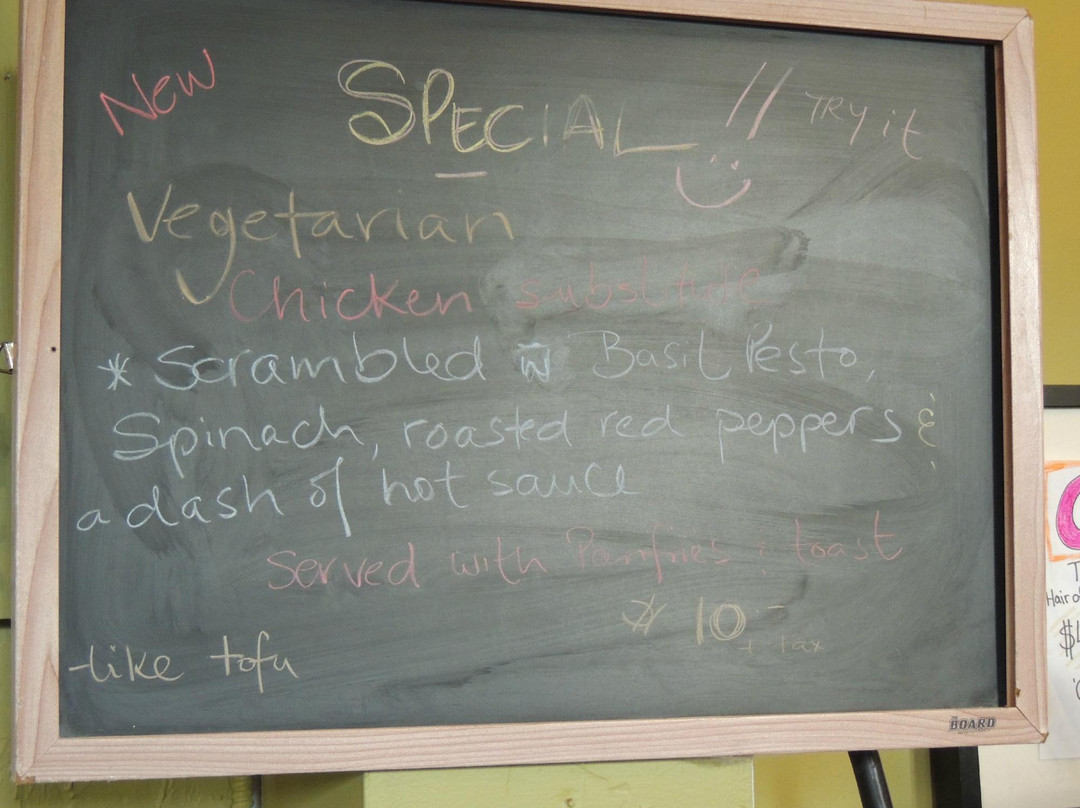 New SPECIAL // TRY it
Vegetarian
Chicken substitute
* Scrambled w Basil Pesto,
Spinach, roasted red peppers &
a dash of hot sauce
Served with Panfries & toast
$ 10.- + tax
-like tofu
THE BOARD
Hair o
$